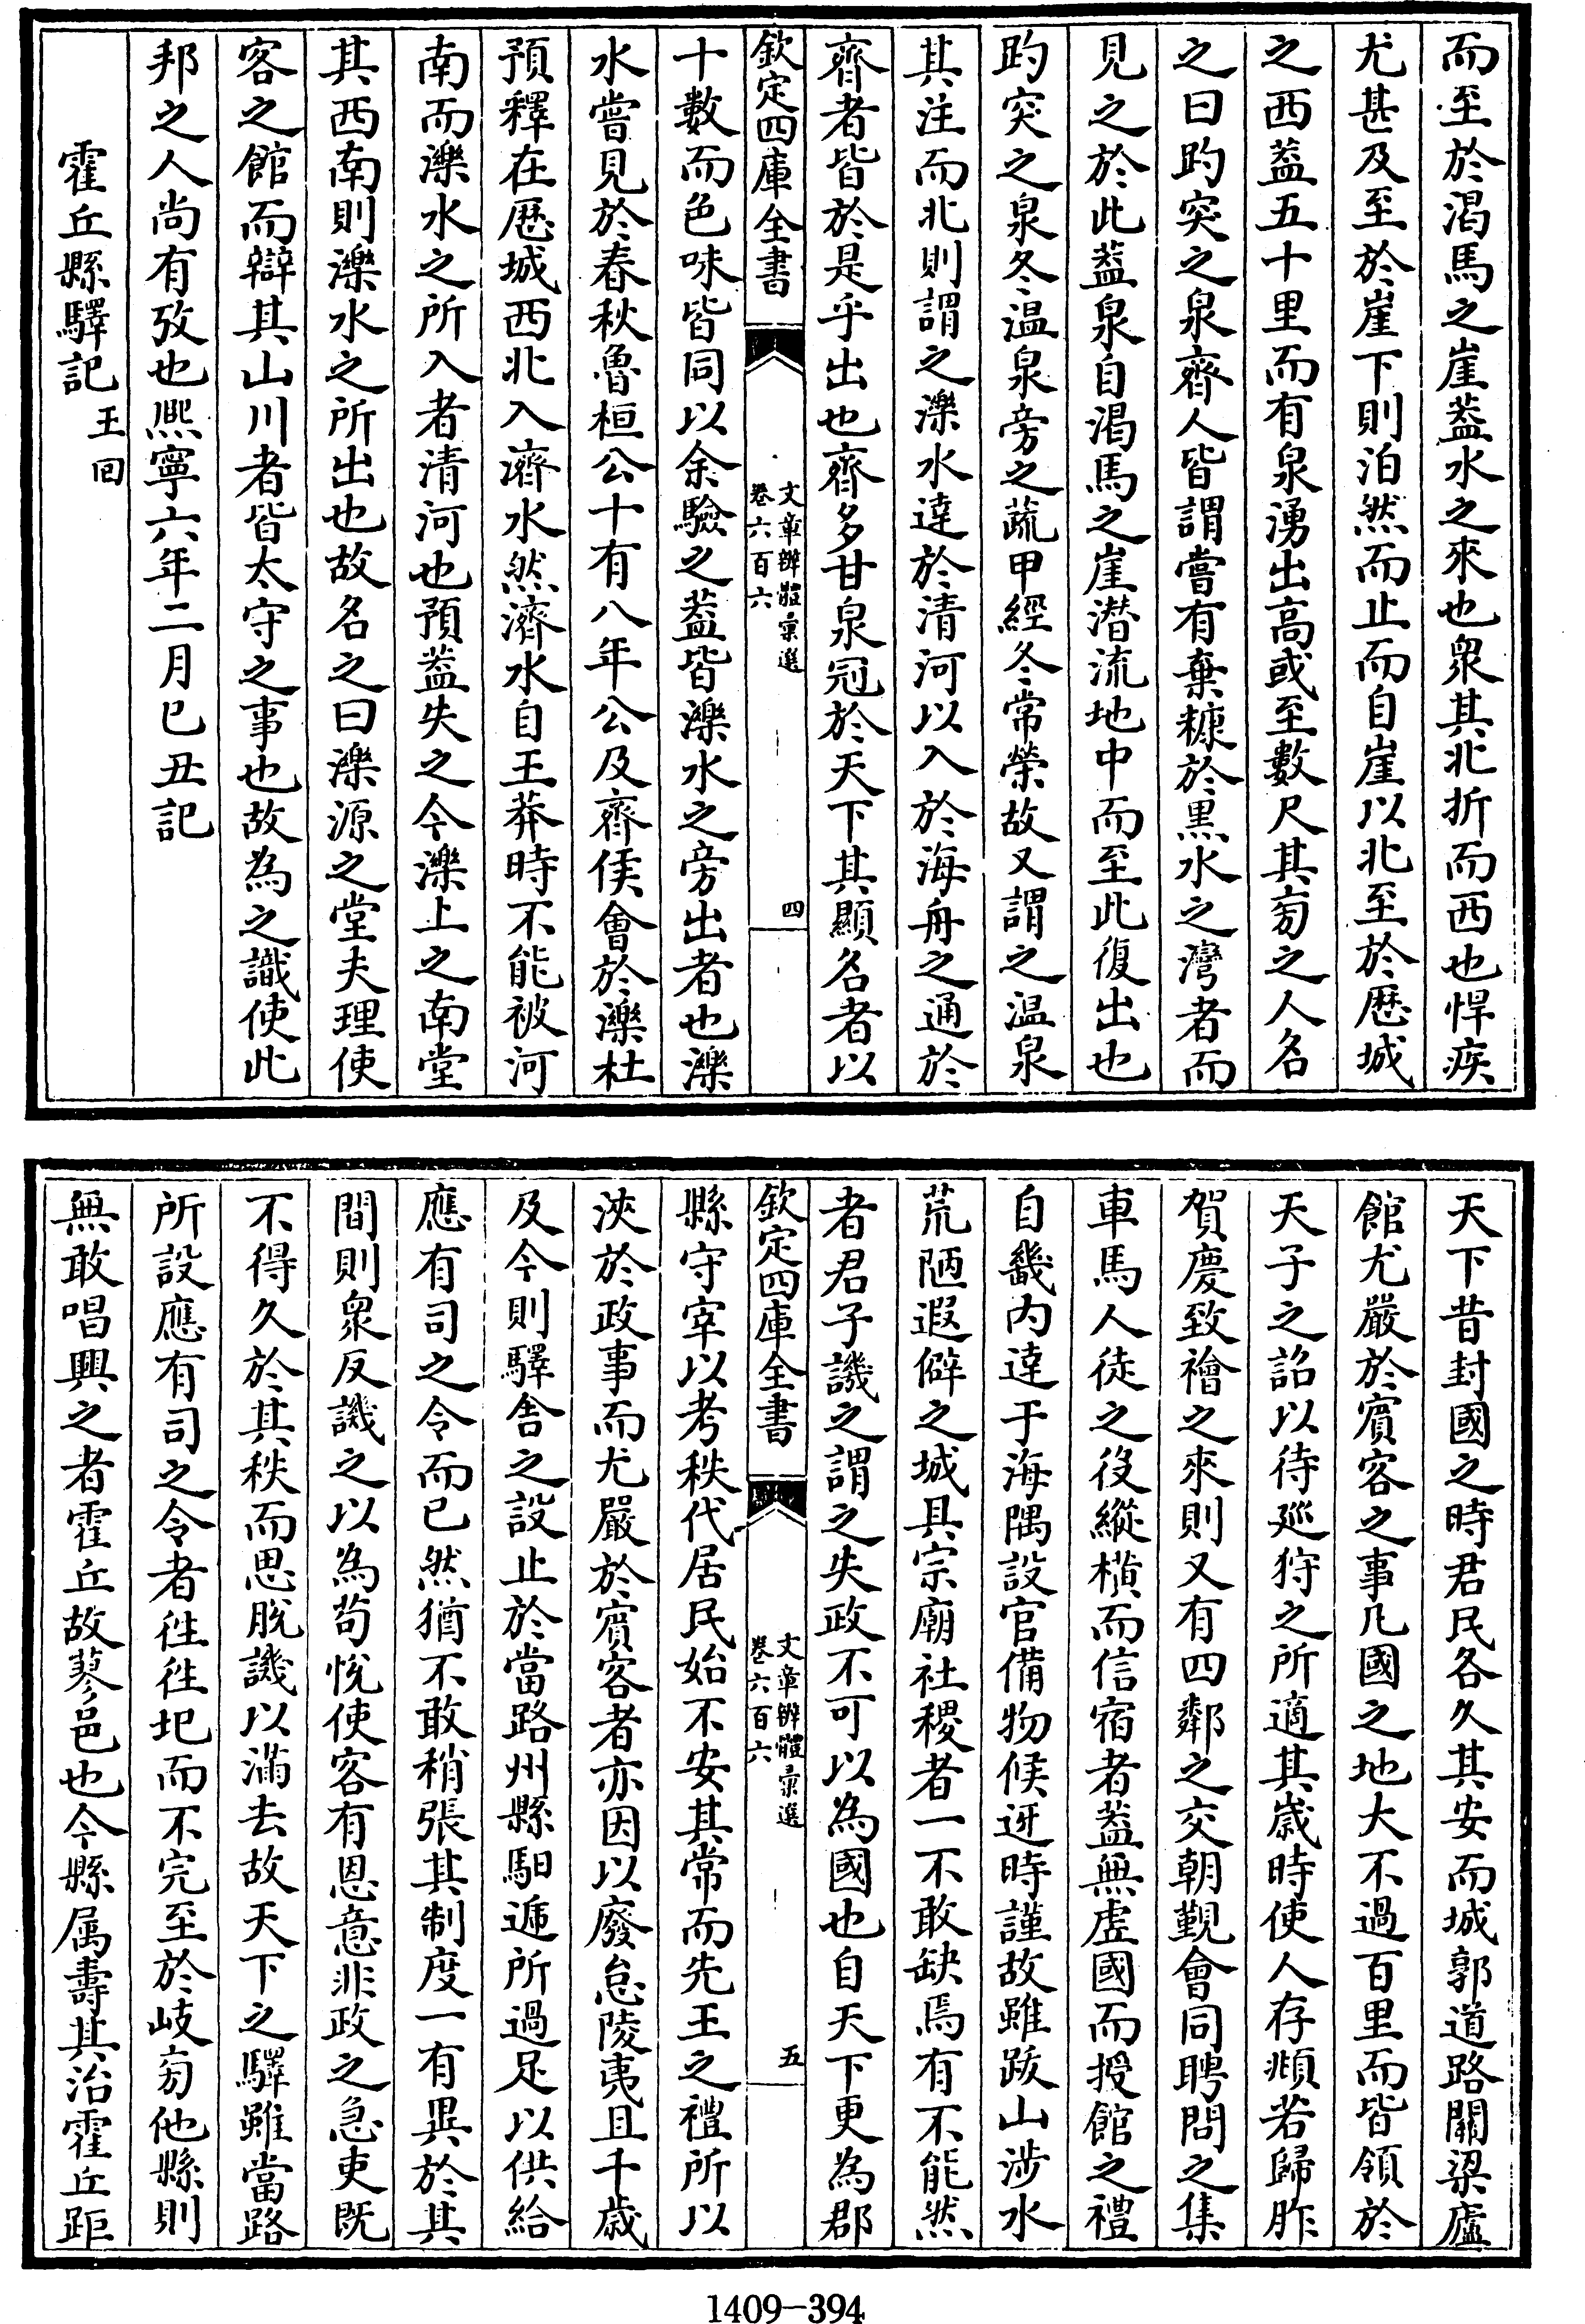 而至於渴馬之崖蓋水之來也衆其北折而西也悍疾
尤甚及至於崖下則泊然而止而自崖以北至於歷城
之西蓋五十里而有泉湧出高或至數尺其旁之人名
之曰趵突之泉齊人皆謂嘗有棄糠於黒水之灣者而
見之於此蓋泉自渴馬之崖潜流地中而至此復出也
趵突之泉冬温泉旁之蔬甲經冬常榮故又謂之温泉
其注而北則謂之濼水達於清河以入於海舟之通於
齊者皆於是乎出也齊多甘泉冠於天下其顯名者以
欽定四庫全書
文章辨體彙選
卷六百六
四
十數而色味皆同以余驗之蓋皆濼水之旁出者也濼
水嘗見於春秋魯桓公十有八年公及齊侯會於濼杜
預釋在歷城西北入濟水然濟水自王莽時不能被河
南而濼水之所入者清河也預蓋失之今濼上之南堂
其西南則濼水之所出也故名之曰濼源之堂夫理使
客之館而辯其山川者皆太守之事也故為之識使此
邦之人尚有攷也熈寧六年二月己丑記
霍丘縣驛記 王回
天下昔封國之時君民各久其安而城郭道路關梁廬
館尤嚴於賓客之事凡國之地大不過百里而皆領於
天子之詔以待廵狩之所適其歳時使人存頫若歸胙
賀慶致襘之來則又有四鄰之交朝覲會同聘問之集
車馬人徒之役縱横而信宿者蓋無虚國而授館之禮
自畿内達于海隅設官備物候迓時謹故雖跋山涉水
荒陋遐僻之城具宗廟社稷者一不敢缺焉有不能然
者君子譏之謂之失政不可以為國也自天下更為郡
欽定四庫全書
文章辨體彙選
卷六百六
五
縣守宰以考秩代居民始不安其常而先王之禮所以
浹於政事而尤嚴於賓客者亦因以廢怠陵夷且千歳
及今則驛舍之設止於當路州縣馹遞所過足以供給
應有司之令而已然猶不敢稍張其制度一有異於其
間則衆反譏之以為苟恱使客有恩意非政之急吏既
不得久於其秩而思脫譏以滿去故天下之驛雖當路
所設應有司之令者徃徃圮而不完至於岐旁他縣則
無敢唱興之者霍丘故蓼邑也今縣属夀其治霍丘距
1409-394